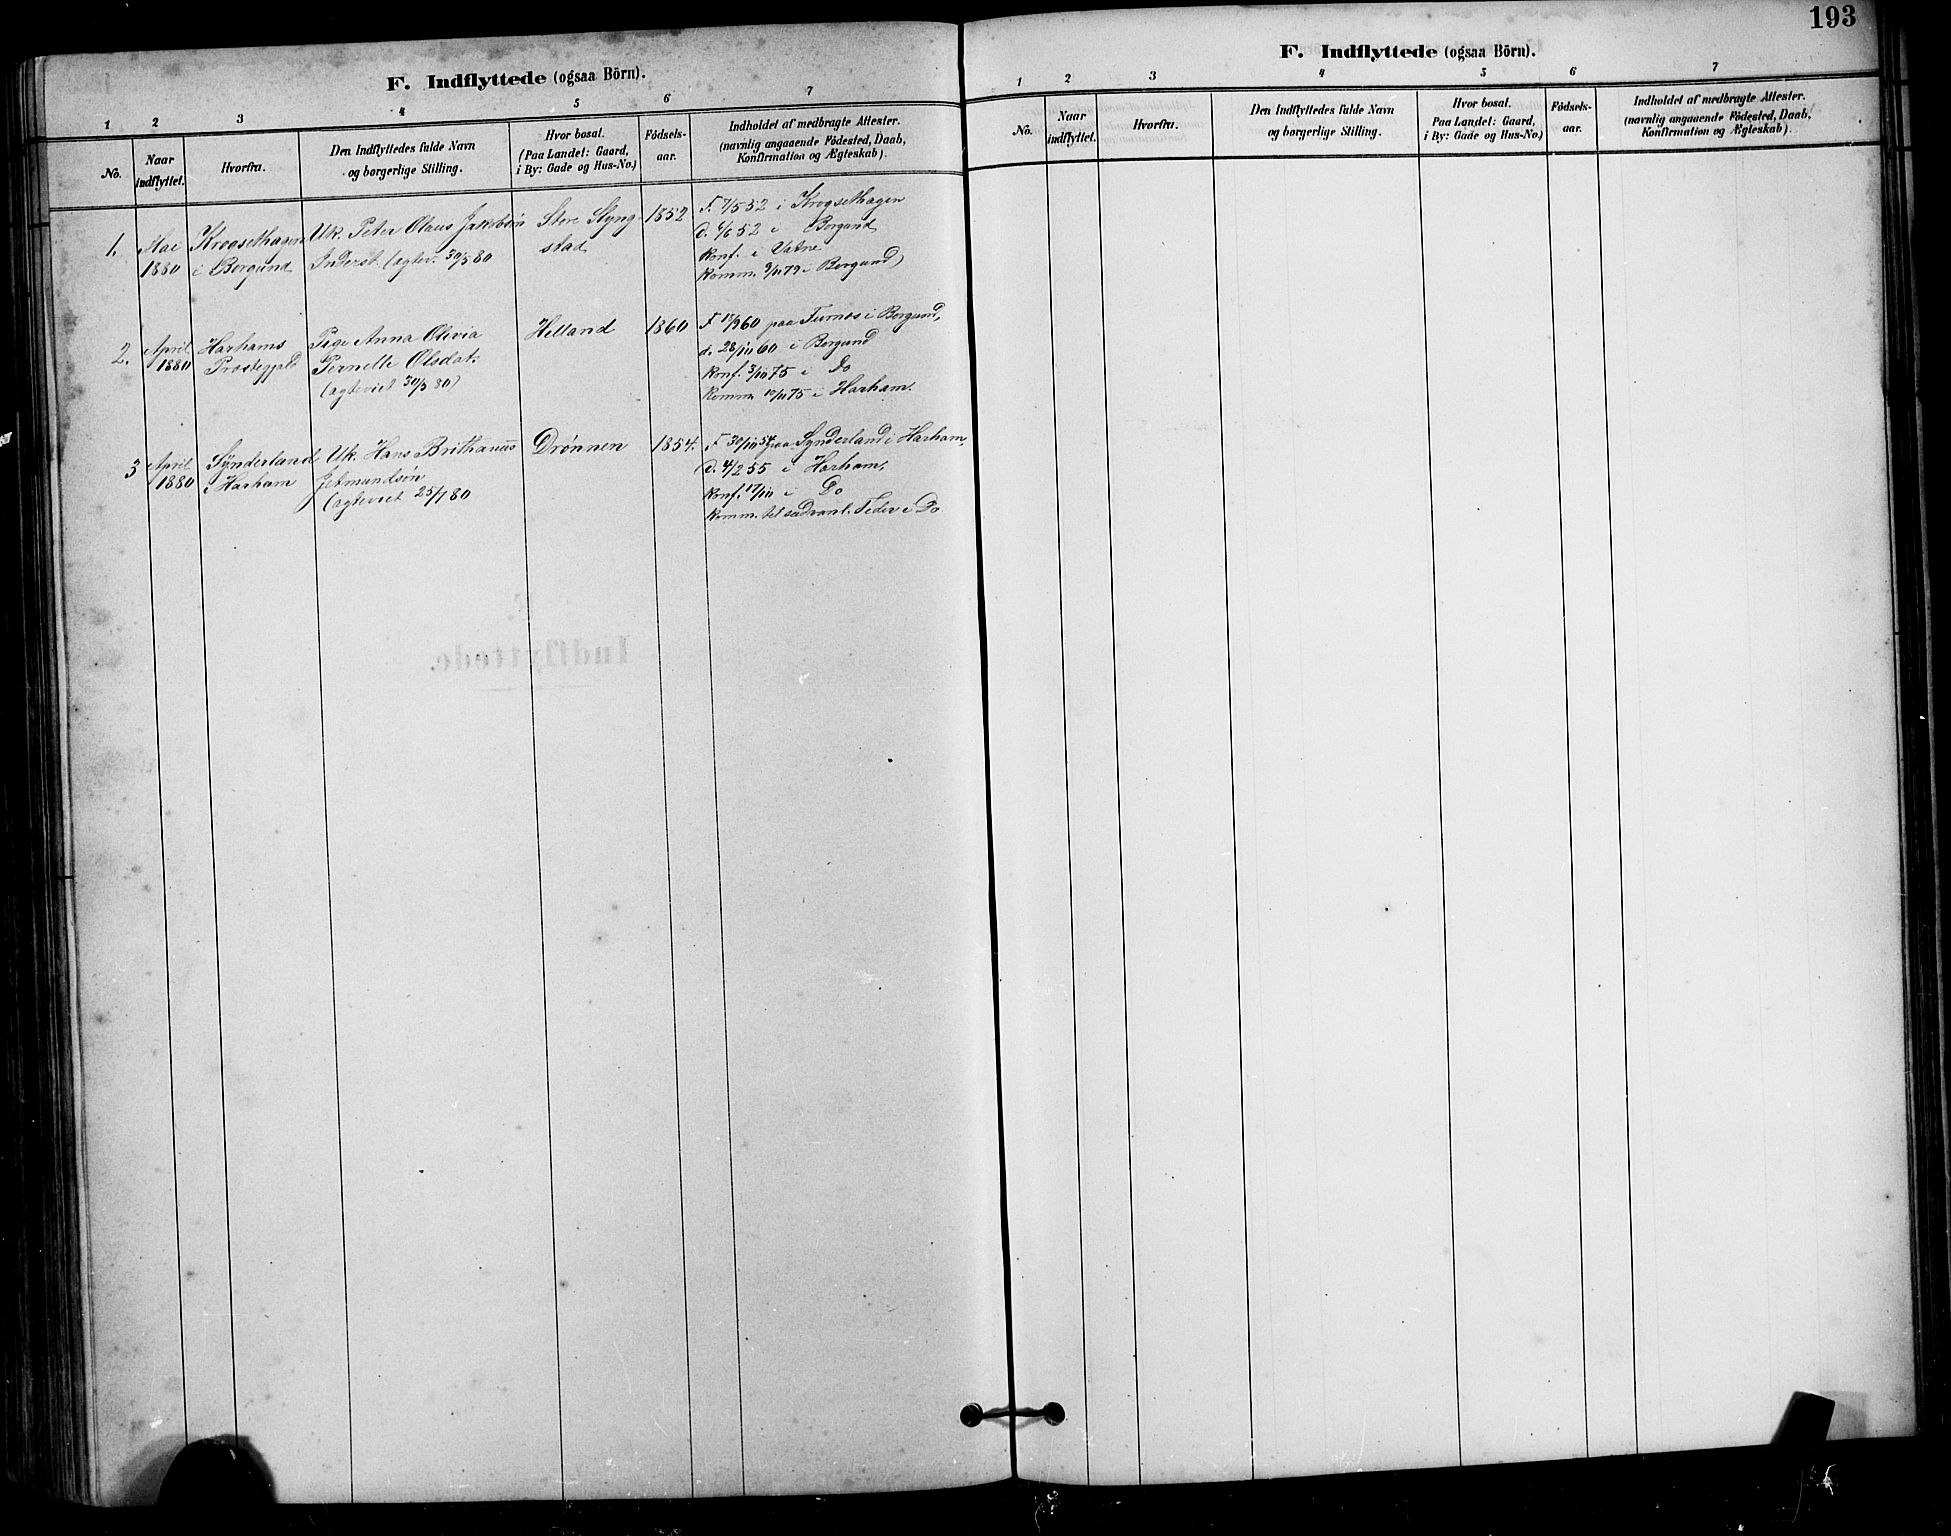 F. Indflyttede (ogsaa Börn).
1 2 3 4 5 6 7
No. Naar indflyttet. Hvorfra. Den Indflyttedes fulde Navn og borgerlige Stilling. Hvor bosat. (Paa Landet: Gaard, i By: Gade og Hus-No.) Födsels-aar. Indholdet af medbragte Attester. (navnlig angaaende Födested, Daab, Konfirmation og Ægteskab).
1. Mai 1880 Kroasethagen i Borgund Uk. Peter Olaus Jakobsøn Inderst. (ægtev. 30/5 80 Store Slyng-stad 1852
F. 7/5 52 i Krogsethagen
d. 4/6 52 i Borgund
Konf. i Vatne
Komm. 9/11 79 i Borgund)
2. April 1880 Harhams Præstegjeld Pige Anna Olivia Pernelle Olsdat. (ægteviet 30/3 80) Helland 1860
F. 17/9 60 paa Furnes i Borgund,
d. 28/10 60 i Borgund
Konf. 3/10 75 i Do
Komm. 10/11 75 i Harham.
3 April 1880 Synderland i Harham Uk. Hans Brithanus Jetmundsøn (ægteviet 25/7 80 Drønnen 1854.
F 30/10 54 paa Synderland i Harham,
d. 4/2 55 i Harham,
Konf. 17/10 i Do
Komm. til sædvanl. Tider i Do
Indflyttede.
193
F. Indflyttede (ogsaa Börn).
1 2 3 4 5 6 7
No. Naar indflyttet. Hvorfra. Den Indflyttedes fulde Navn og borgerlige Stilling. Hvor bosat. Paa Landet: Gaard, i By: Gade og Hus-No.) Födsels-aar. Indholdet af medbragte Attester. (navnlig angaaende Födested, Daab, Konfirmation og Ægteskab).